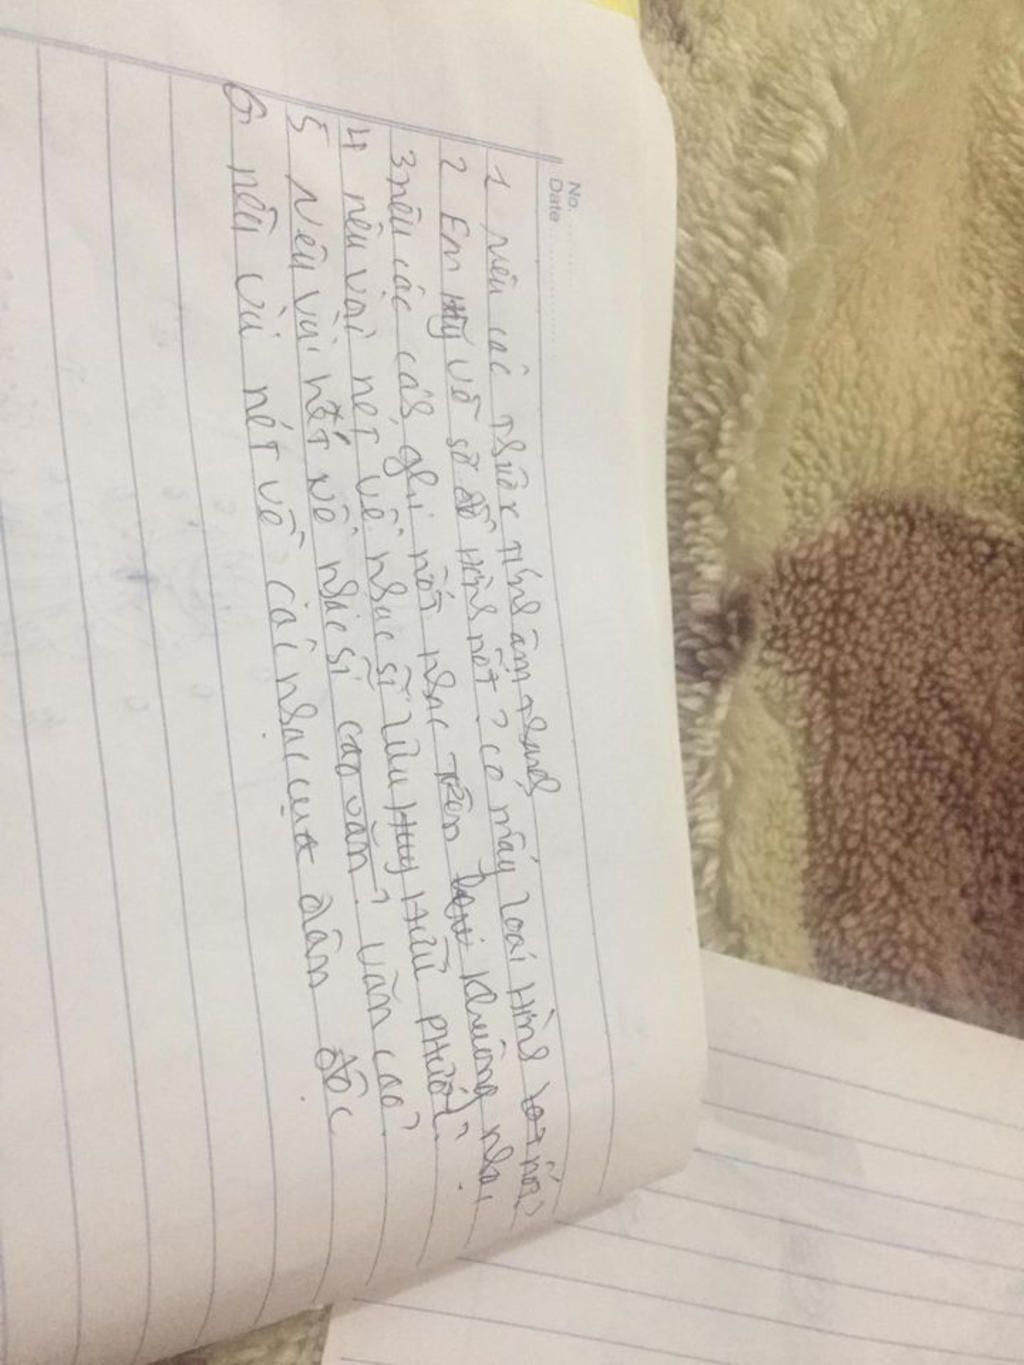 No.
Date
1 nêu các thuộc tính âm thanh
2 Em Hãy vẽ sơ đồ Hình nốt? có mấy loại Hình nốt
3 nêu các cách ghi nốt nhạc trên khuông nhạc
4 nêu vài nét về nhạc sĩ lưu Hữu Phước?
5 Nêu vài nét về nhạc sĩ văn cao?
6 nêu vài nét về các nhạc cụ dân độc